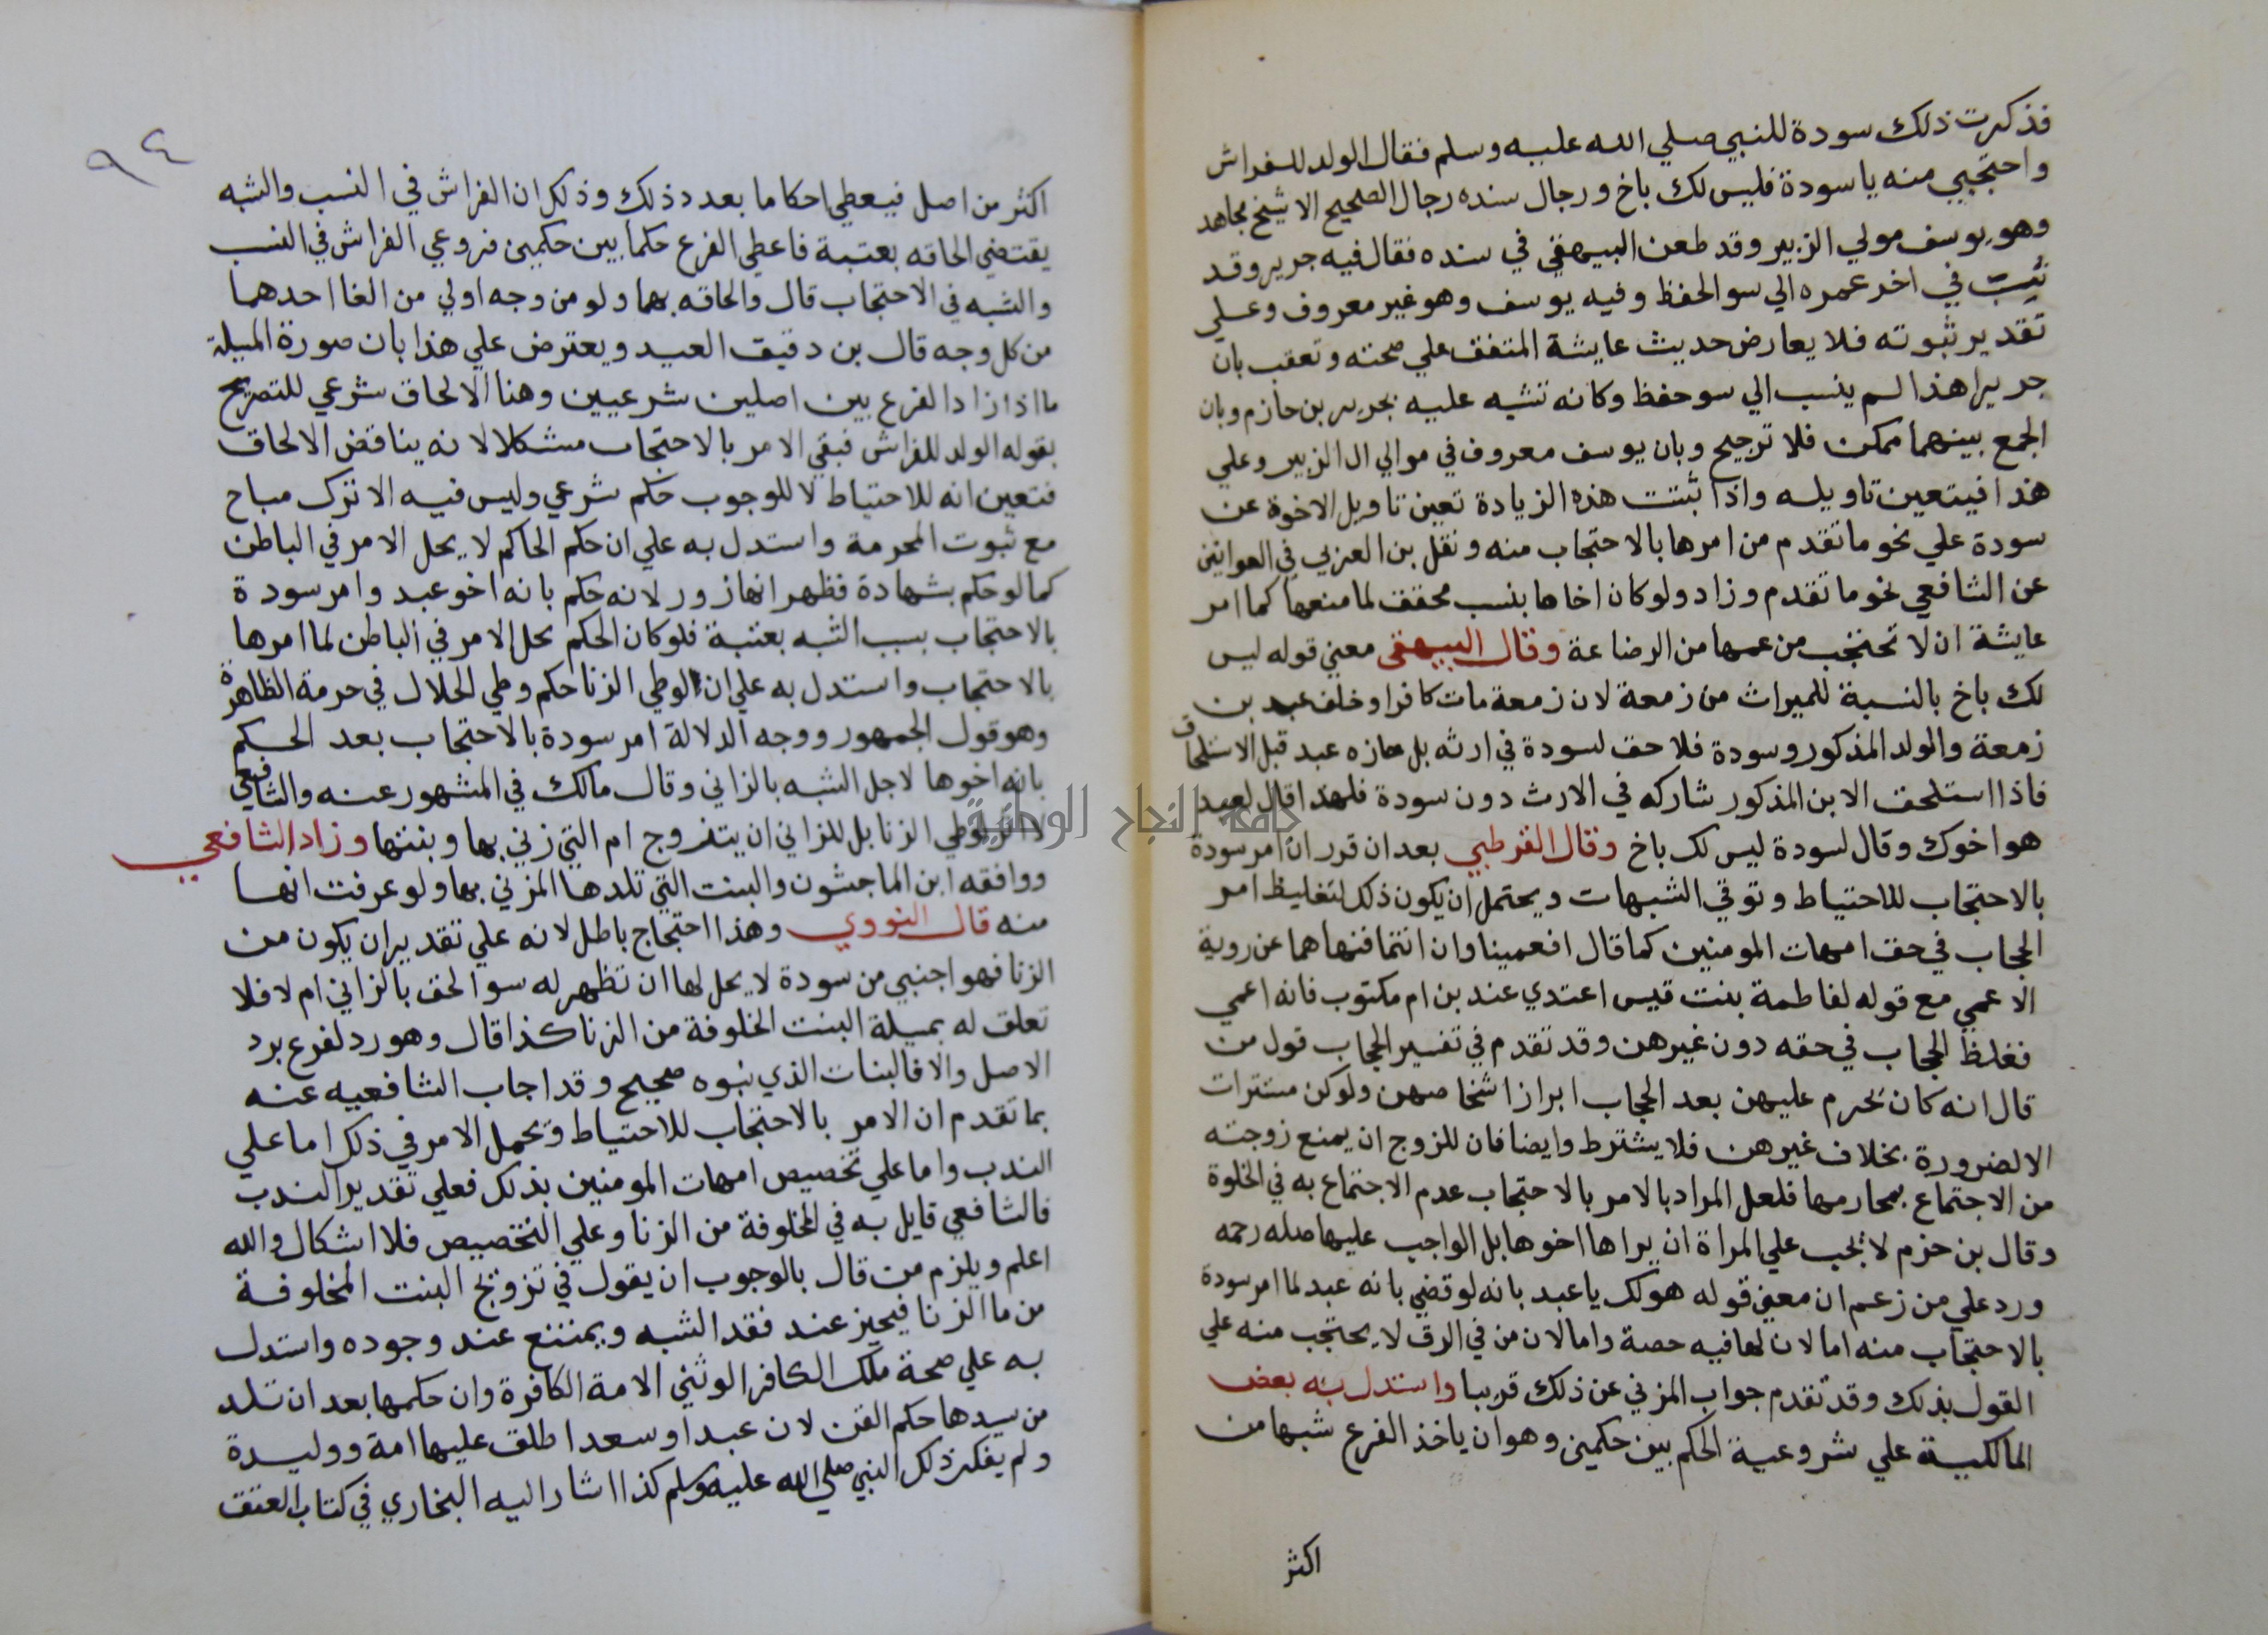 فذكرت ذلك سودة للنبي صلي الله عليه وسلم فقال الولد للفراش
واحتجبي منه يا سودة فليس لك باخ ورجال سنده رجال الصحيح الا شيخ مجاهد
وهو يوسف مولي الزبير وقد طعن البيهقي في سنده فقال فيه جرير وقد
نسب في اخر عمره الي سو الحفظ وفيه يوسف وهو غير معروف وعلي
تقدير ثبوته فلا يعارض حديث عايشة المتفق علي صحته وتعقب بان
جريرا هذا لم ينسب الي سو حفظ وكانه تشبه عليه بجرير بن حازم وبان
الجمع بينهما ممكن فلا ترجيح وبان يوسف معروف في موالي ال الزبير وعلي
هذا فيتعين تاويله واذا ثبتت هذه الزيادة تعين تاويل الاخوة عن
سودة علي نحو ما تقدم من امرها بالاحتجاب منه ونقل بن العربي في العوانين
عن الشافعي نحو ما تقدم وزاد ولو كان اخاها بنسب محقق لما منعها كما امر
عايشة ان لا تحتجب من عمها من الرضاعة وقال البيهقي معني قوله ليس
لك باخ بالنسبة للميراث من زمعة لان زمعة مات كافرا وخلف عبد بن
زمعة والولد المذكور وسودة فلا حق لسودة في ارثه بل حازه عبد قبل الاستلحاق
فاذا استلحق الابن المذكور شاركه في الارث دون سودة فلهذا قال لعبد
هو اخوك وقال لسودة ليس لك باخ وقال القرطبي بعد ان قرر ان امر سودة
بالاحتجاب للاحتياط وتوقي الشبهات ويحتمل ان يكون ذلك لتغليظ امر
الحجاب في حق امهات المومنين كما قال افعميا وان انتما فنهاهما عن روية
الاعمي مع قوله لفاطمة بنت قيس اعتدي عند بن ام مكتوب فانه اعمي
فغلظ الحجاب في حقه دون غيرهن وقد تقدم في تفسير الحجاب قول من
قال انه كان يحرم عليهن بعد الحجاب ابراز اشخاصهن ولو كن مستترات
الا لضرورة بخلاف غيرهن فلا يشترط وايضا فان للزوج ان يمنع زوجته
من الاجتماع بمحارمها فلعل المراد بالامر بالاحتجاب عدم الاجتماع به في الخلوة
وقال بن حزم لا يجب علي المراة ان يراها اخوها بل الواجب عليها صله رحمه
ورد علي من زعم ان معني قوله هو لك يا عبد بانه لو قضي بانه عبد لما امر سودة
بالاحتجاب منه اما لان لها فيه حصة واما لان من في الرق لا يحتجب منه علي
القول بذلك وقد تقدم جواب المزني عن ذلك قريبا واستدل به بعض
المالكية علي شروعية الحكم بين حكمين وهو ان ياخذ الفرع شبها من
اكثر
٩٤
اكثر من اصل فيعطي احكاما بعدد ذلك وذلك ان الفراش في النسب والشبه
يقتضي الحاقه بعتبة فاعطي الفرع حكما بين حكمين فروعي الفراش في النسب
والشبه في الاحتجاب قال والحاقه بهما ولو من وجه اولي من الغا احدهما
من كل وجه قال بن دقيق العيد ويعترض علي هذا بان صورة المسلة
ما اذا زاد الفرع بين اصلين شرعيين وهنا الالحاق شرعي للتصريح
بقوله الولد للفراش فبقي الامر بالاحتجاب مشكلا لانه يناقض الالحاق
فتعين انه للاحتياط لا للوجوب حكم شرعي وليس فيه الا ترك مباح
مع ثبوت المحرمة واستدل به علي ان حكم الحاكم لا يحل الامر في الباطن
كما لو حكم بشهادة فظهر انها زور لانه حكم بانه اخو عبد وامر سودة
بالاحتجاب بسبب الشبه بعتبة فلو كان الحكم يحل الامر في الباطن لما امرها
بالاحتجاب واستدل به علي ان الوطي الزنا حكم وطي الحلال في حرمة الظاهرة
وهو قول الجمهور ووجه الدلالة امر سودة بالاحتجاب بعد الحكم
بانه اخوها لاجل الشبه بالزاني وقال مالك في المشهور عنه والشافعي
لا اثر لوطي الزنا بل للزاني ان يتزوج ام التي زني بها وبنتها وزاد الشافعي
ووافقه ابن الماجشون والبنت التي تلدها المزني بها ولو عرفت انها
منه قال النووي وهذا احتجاج باطل لانه علي تقدير ان يكون من
الزنا فهو اجنبي من سودة لا يحل لها ان تظهر له سوا لحق بالزاني ام لا فلا
تعلق له بمسلة البنت المخلوفة من الزنا كذا قال وهو رد لفرع برد
الاصل والا فالبنات الذي بنوه صحيح وقد اجاب الشافعيه عنه
بما تقدم ان الامر بالاحتجاب للاحتياط وتحمل الامر في ذلك اما علي
الندب واما علي تخصيص امهات المومنين بذلك فعلي تقدير الندب
فالشافعي قايل به في المخلوفة من الزنا وعلي التخصيص فلا اشكال والله
اعلم ويلزم من قال بالوجوب ان يقول في تزويج البنت المخلوفة
من ما الزنا فيجيز عند فقد الشبه ويمتنع عند وجوده واستدل
به علي صحة ملك الكافر الوثني الامة الكافرة وان حكمها بعد ان تلد
من سيدها حكم القن لان عبدا وسعدا طلق عليها امة ووليدة
ولم ينكر ذلك النبي صلي الله عليه وسلم كذا اشار اليه البخاري في كتاب العتق
جامعة النجاح الوطنية